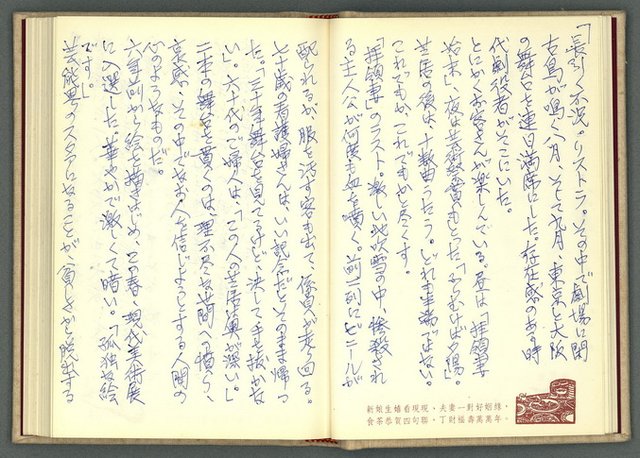 「長引く不況。リストラ。その中で劇場に閑
古鳥が鳴く八月、そして九月、東京と大阪
の舞台を連日満席にした。存在感のある時
代劇役者がそこにいた。
とにかくお客さんが楽しんでいる。昼は「拝領妻
始末」、夜は芸術祭賞をもとった「かあちゃんは太陽」。
芝居の後は、十数曲うたう。どれも半端ではない。
これでもか、これでもかと尽くす。
「拝領妻」のラスト。激しい吹雪の中、惨殺され
る主人公が何度も血を噴く。前一列にビニールが
配られるが服を汚す客も出て、係員が走り回る。
七十歳の看護婦さんは、いい記念だとそのまま帰っ
た。「二十年舞台を見てるけど、決して手を抜かな
い」。六十代のご婦人は、「この人の芝居は奥が深い。」
二本の舞台を貫くのは、理不尽な世間への憤り、
哀感。その中でなお、人を信じようとする人間の
心のようなものだ。
六年前から絵を描きだめ、この春、現代美術展
に入選した。華やかで激しくて暗い。「孤独な絵
です。」
芸能界のスタアになることが、貧しさから脱出する
新娘生嬌看現現，夫妻一對好姻緣，
食茶恭賀四句聯，丁財福壽萬萬年。